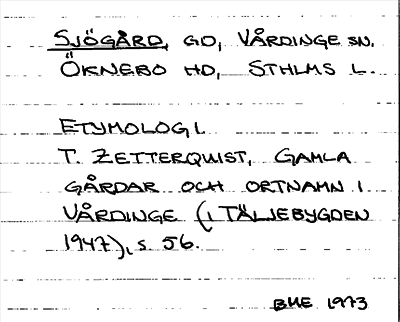 SJÖGÅRD, GD, VÅRDINGE SN.
ÖKNEBO HD, STHLMS L.
ETYMOLOGI.
T. ZETTERQUIST, GAMLA
GÅRDAR OCH ORTNAMN I
VÅRDINGE (I TÄLJEBYGDEN
1947), S. 56.
BHE 1973